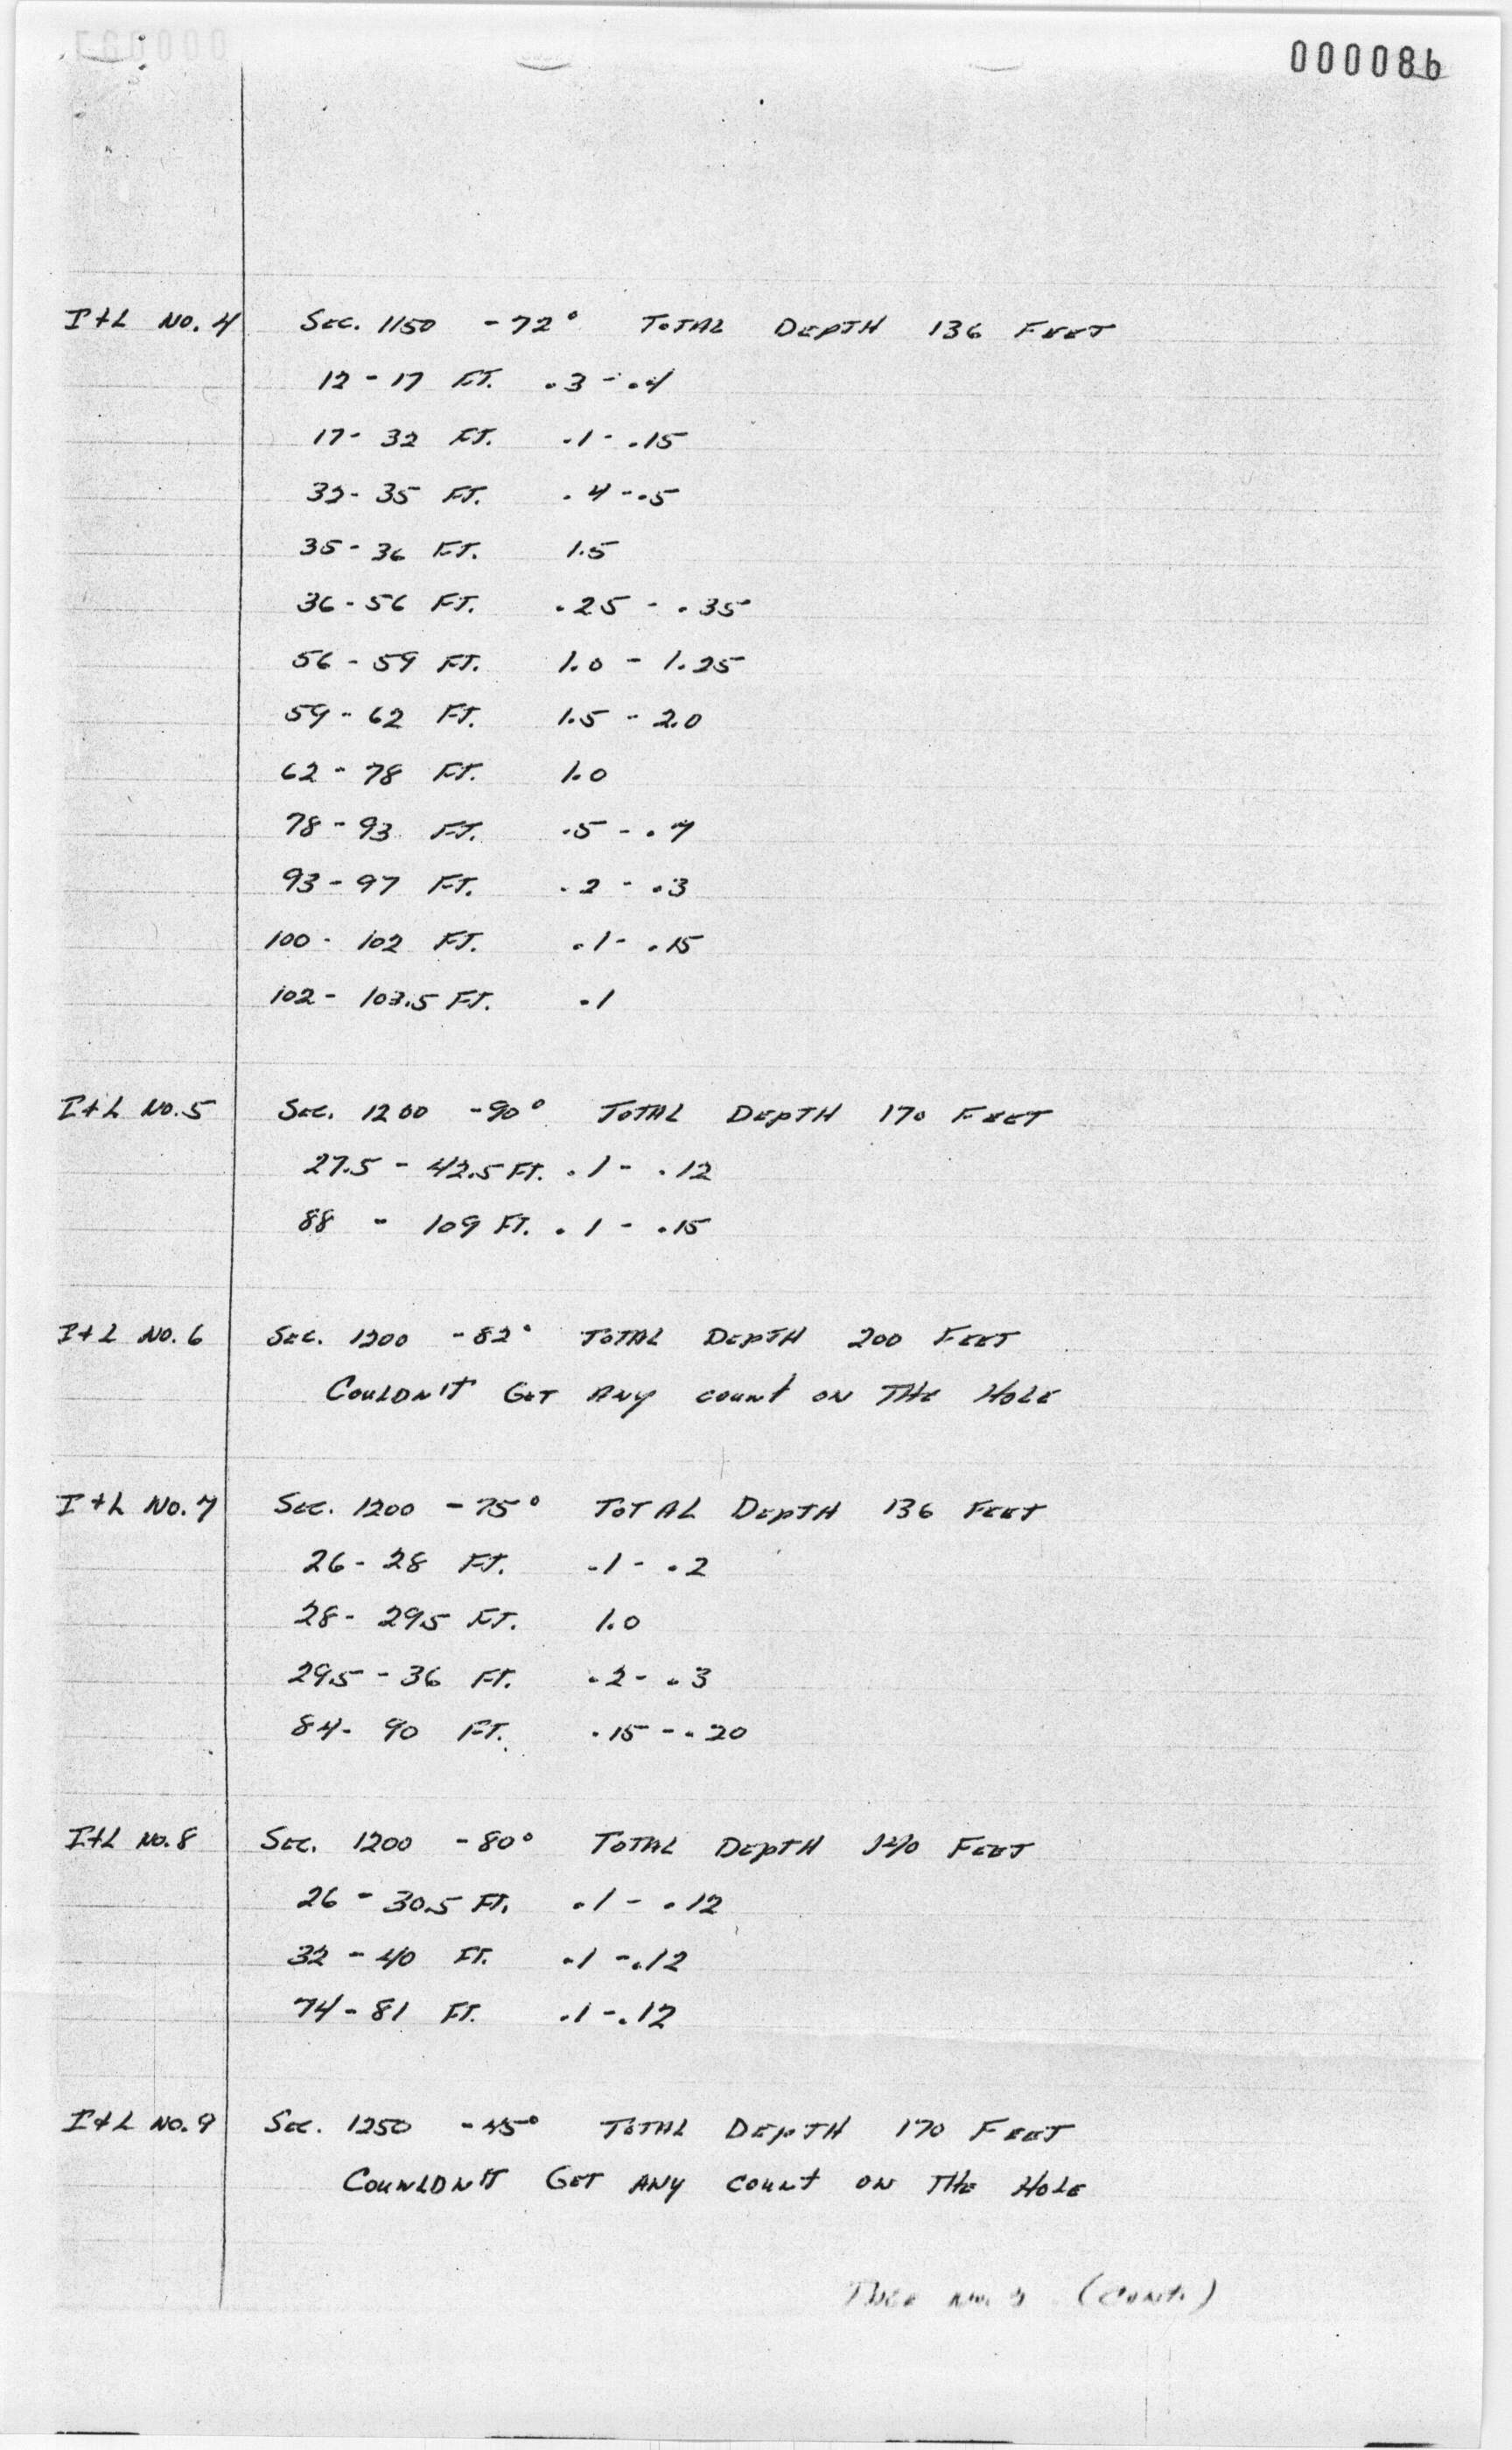 000086
I+L NO. 4 SEC. 1150 -72° TOTAL DEPTH 136 FEET
12 - 17 FT. .3 - .4
17 - 32 FT. .1 - .15
32 - 35 FT. .4 - .5
35 - 36 FT. 1.5
36 - 56 FT. .25 - .35
56 - 59 FT. 1.0 - 1.25
59 - 62 FT. 1.5 - 2.0
62 - 78 FT. 1.0
78 - 93 FT. .5 - .7
93 - 97 FT. .2 - .3
100 - 102 FT. .1 - .15
102 - 103.5 FT. .1
I+L NO. 5 SEC. 1200 -90° TOTAL DEPTH 170 FEET
27.5 - 42.5 FT. .1 - .12
88 - 109 FT. .1 - .15
I+L NO. 6 SEC. 1200 -82° TOTAL DEPTH 200 FEET
COULDN'T GET ANY COUNT ON THE HOLE
I+L NO. 7 SEC. 1200 -75° TOTAL DEPTH 136 FEET
26 - 28 FT. .1 - .2
28 - 29.5 FT. 1.0
29.5 - 36 FT. .2 - .3
84 - 90 FT. .15 - .20
I+L NO. 8 SEC. 1200 -80° TOTAL DEPTH 140 FEET
26 - 30.5 FT. .1 - .12
32 - 40 FT. .1 - .12
74 - 81 FT. .1 - .12
I+L NO. 9 SEC. 1250 -45° TOTAL DEPTH 170 FEET
COUNLDN'T GET ANY COUNT ON THE HOLE
No. (CONT.)